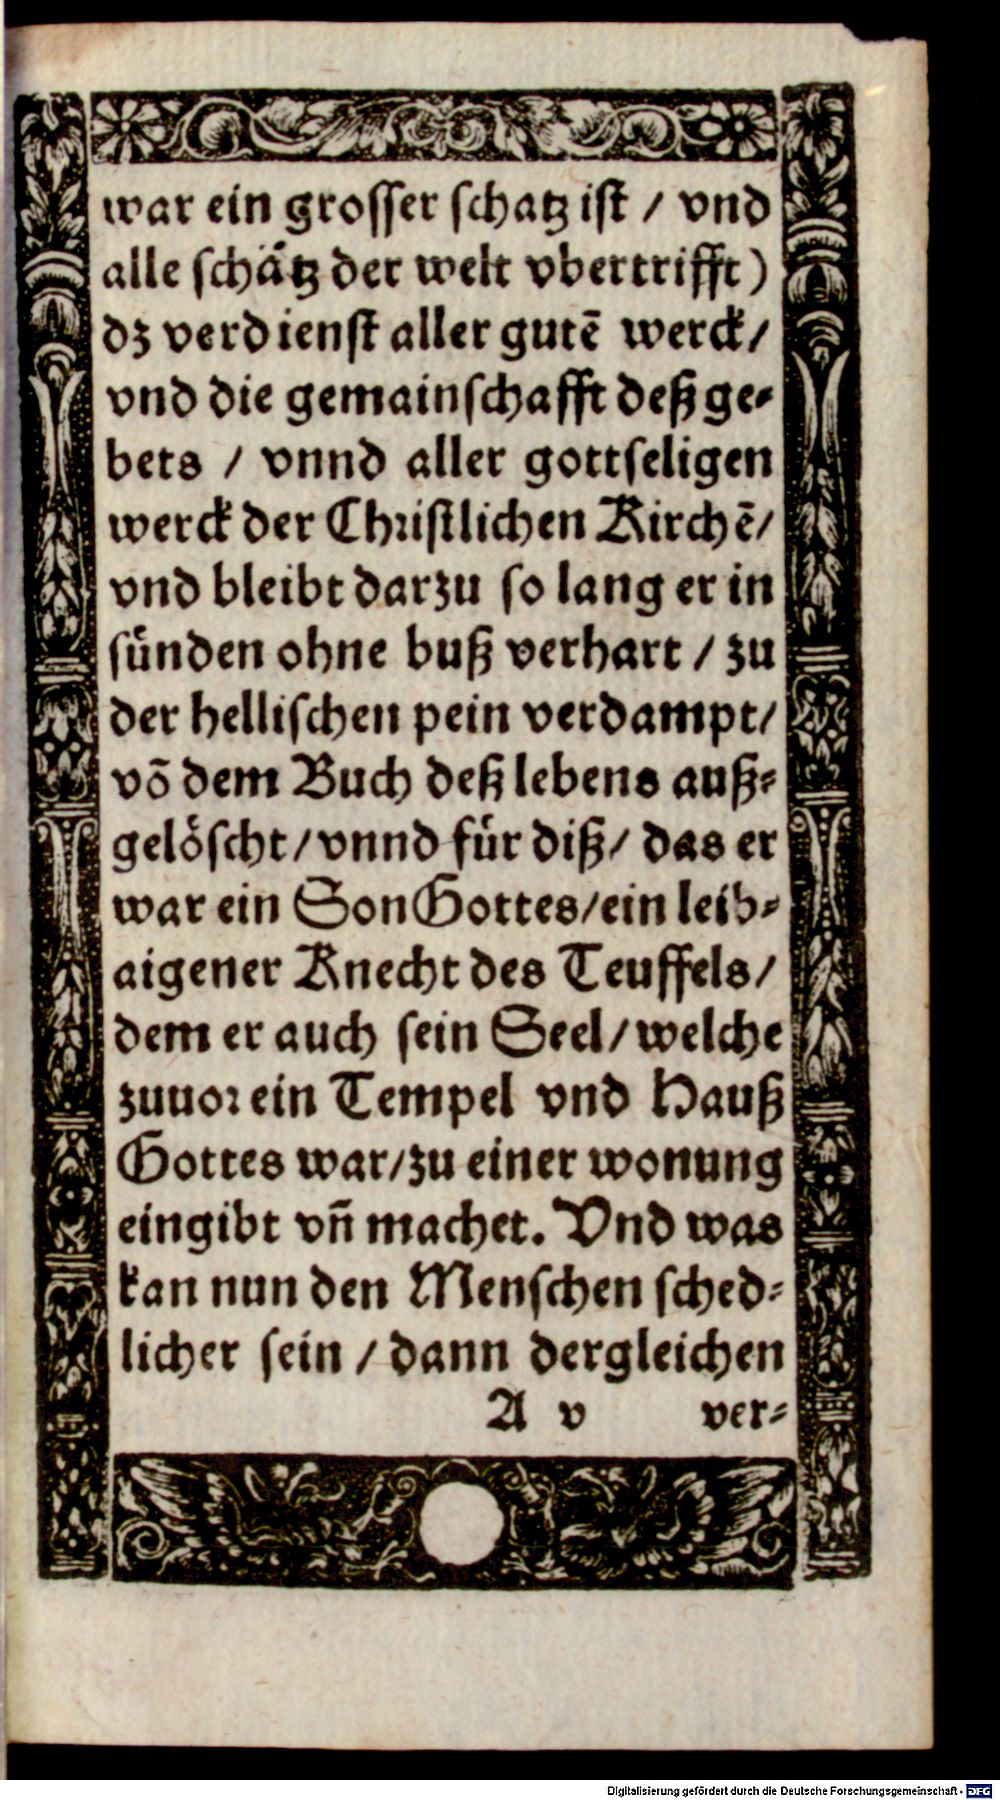 war ein groſſer ſchatz iſt / vnd
alle ſchaͤtz der welt vbertrifft)
dz verdienſt aller gutē werck/
vnd die gemainſchafft deß ge⸗
bets / vnnd aller gottſeligen
werck der Chꝛiſtlichen Kirchē/
vnd bleibt darzu ſo lang er in
ſünden ohne buß verhart / zu
der helliſchen pein verdampt/
vō dem Buch deß lebens auß⸗
gelöſcht / vnnd für diß / das er
war ein Son Gottes/ein leib⸗
aigener Knecht des Teuffels/
dem er auch ſein Seel/welche
zuuoꝛ ein Tempel vnd Hauß
Gottes war/zu einer wonung
eingibt vñ machet. Vnd was
kan nun den Menſchen ſched⸗
licher ſein / dann dergleichen
A v ver⸗
Digitalisierung gefördert durch die Deutsche Forschungsgemeinschaft - DFG